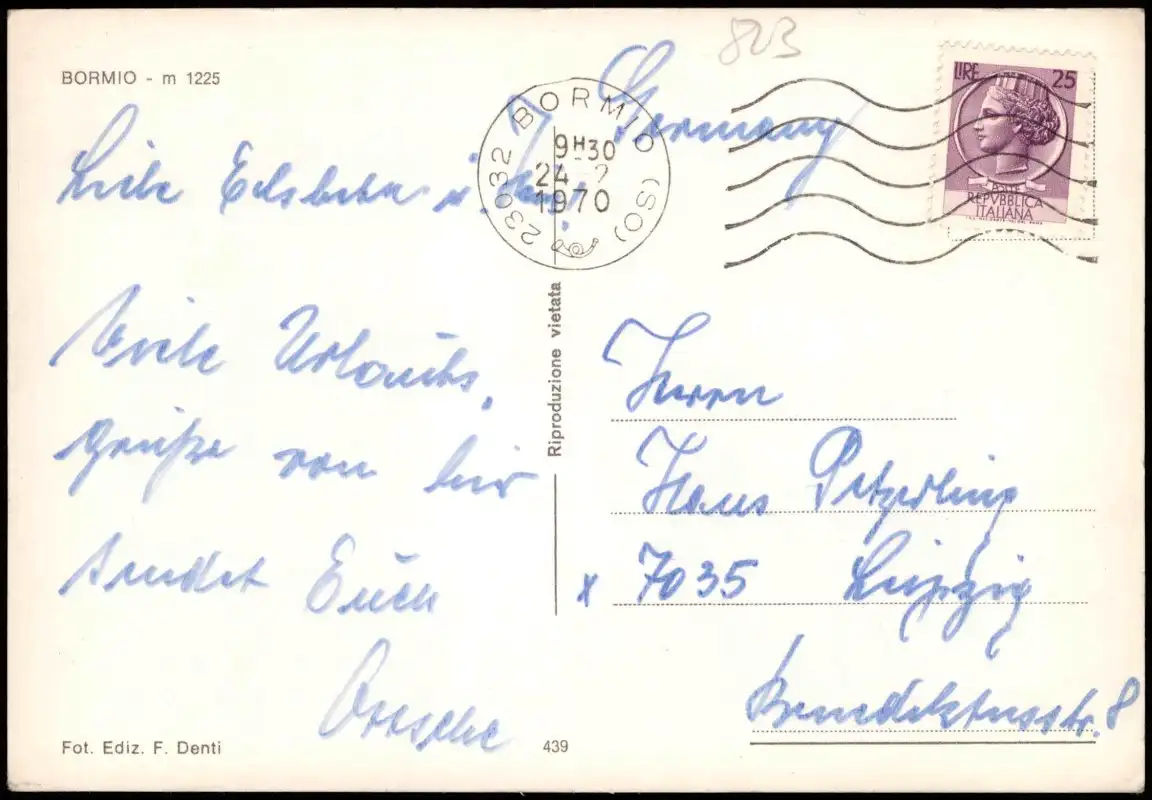 BORMIO - m 1225
Liebe Elsbeth u.
Viele Urlaubs,
grüße von hier
sendet Euch
Fot. Ediz. F. Denti
439
Riproduzione vietata
823
Germany
23032 BORMIO (SO)
9H30
24 - 2
1970
LIRE 25
POSTE
REPVBBLICA
ITALIANA
Herrn
Hans Petzerling
x 7035 Leipzig
Benediktusstr. 8